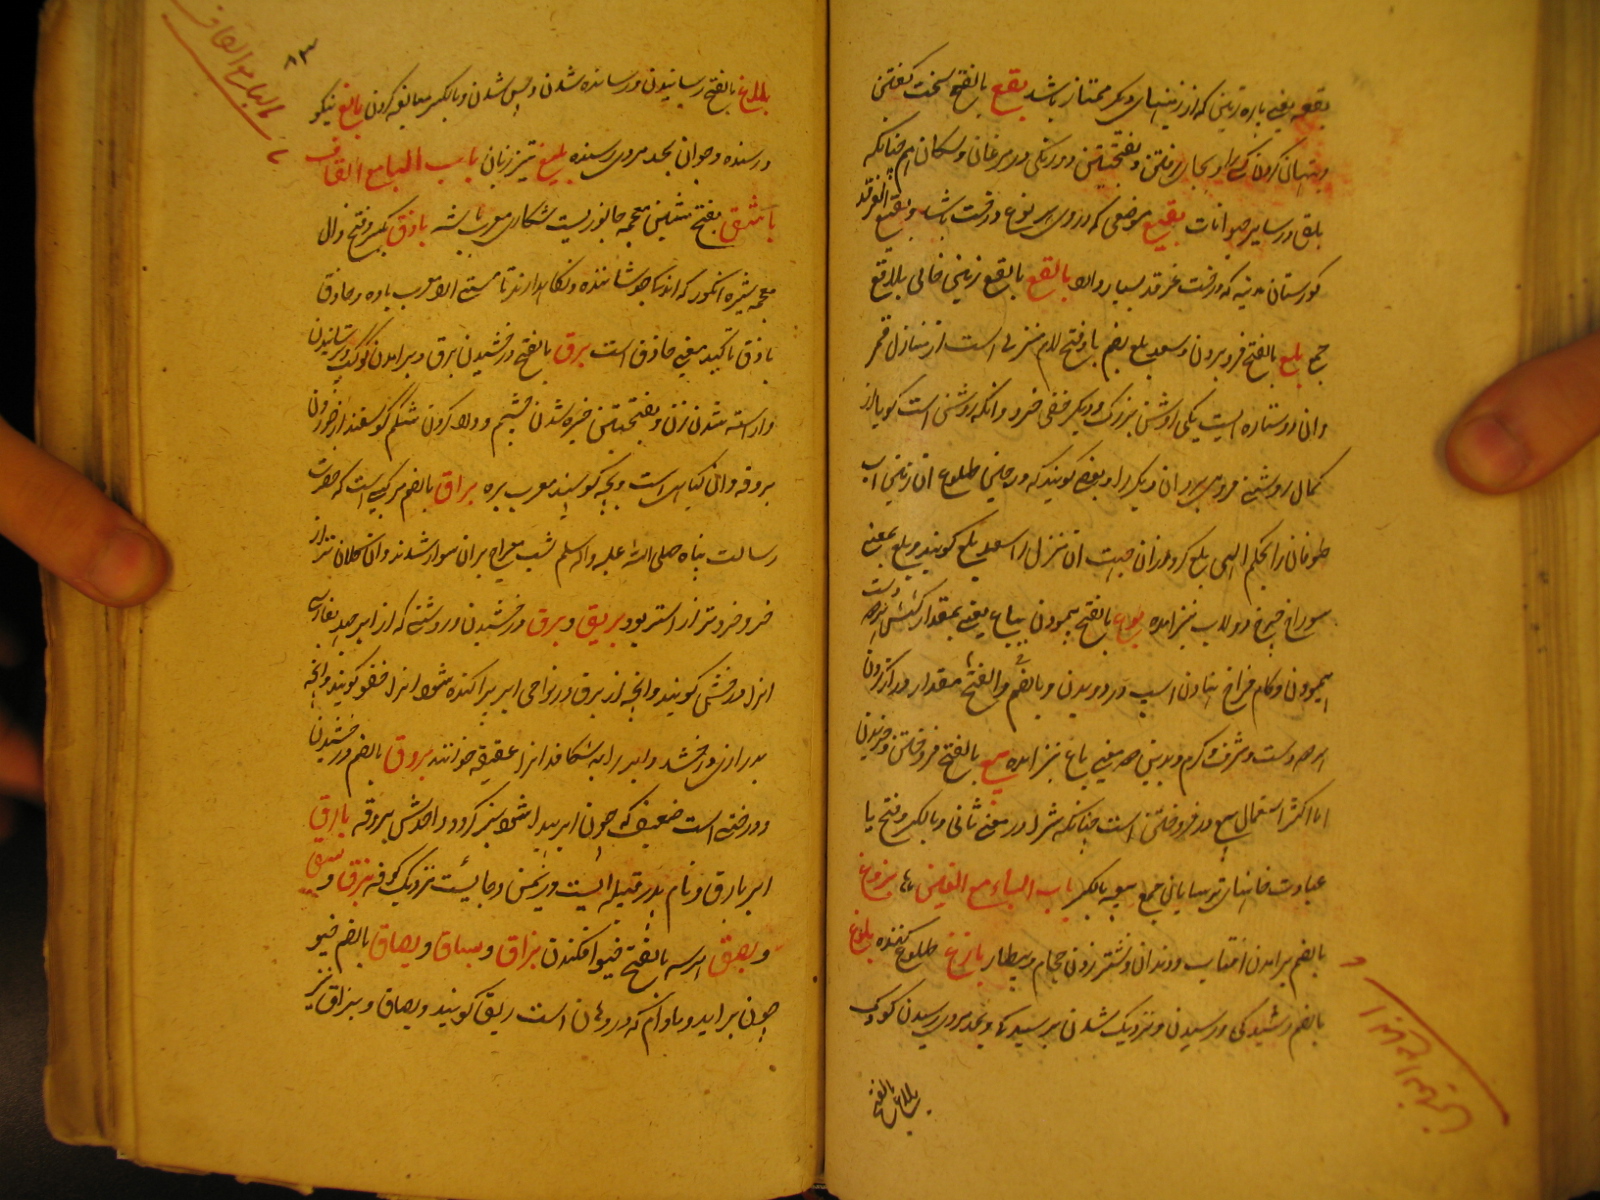 بقعه یعنی پاره زمینی که از زمینهای دیگر ممتاز باشد بقع بالفتح سخت گفتن
و بفتحتین دورنگی در مرغان و سگان هم چنانکه
بلق در سایر حیوانات بقیع موضعی که در وی هر نوع درخت باشد و بقیع الغرقد
گورستان مدینه که درخت غرقد بسیار دارد بلقع بالفتح زمینی خالی بلاقع
جمع بلع بالفتح فرو بردن و سعد بلع بضم با و فتح لام منزلی است از منازل قمر
و آن دو ستاره ایست یکی روشن بزرگ و دیگر خفی خرد و آنکه روشن است گویا از
کمال روشنی فرو میبرد آن دیگر را و بعضی گویند که در حین طلوع آن زمین آب
طوفان را بحکم الهی بلع کرد از آن جهت آن منزل را سعد بلع گویند و بلع بمعنی
سوراخ چرخ دولاب نیز آمده بوع بالفتح پیمودن بباع یعنی بمقدار کشش هر دو دست
پیمودن و گام فراخ نهادن اسب در دویدن و بالضم والفتح مقدار دراز کردن
هر دو دست و شرف و کرم و بدین معنی باع نیز آمده بیع بالفتح فروختن و خریدن
اما اکثر استعمال بیع در فروختن است چنانکه شرا در معنی ثانی و بالکسر و فتح یا
عبادت خانهای ترسایان جمع بیعه بالکسر باب الباء مع الغین بزوغ
بالضم برآمدن آفتاب و دندان و نشتر زدن حجام و بیطار بازغ طلوع کننده بلوغ
بالضم رسیدگی و رسیدن و نزدیک شدن برسیدن و بحد مردی رسیدن کودک
بلاغ بالفتح
۸۳
باب الباء مع القاف
بلاغ بالفتح رسانیدن و رسانده شدن و بس شدن و بالکسر مبالغه کردن بالغ نیکو
و رسنده و جوان بحد مردی رسنده بلیغ تیز زبان باب الباء مع القاف
باشق بفتح شین معجمه جانوریست شکاری معرب باشه باذق بکسر و فتح ذال
معجمه شیره انگور که اندک جوشانند و نگاهدارند تا مست آرد معرب باده و حاذق
باذق تاکید معنی حاذق است برق بالفتح درخشیدن برق و برآمدن کوکب و ترسانیدن
و آراسته شدن زن و بفتحتین خیره شدن چشم و درد کردن شکم گوسفند از خوردن
بروقه و آن گیاهی است و بچه گوسپند معرب بره براق بالضم مرکبی است که حضرت
رسالت پناه صلی الله علیه و آله و سلم شب معراج بران سوار شدند و آن کلان تر از
خر و خردتر از استر بود بریق و برق درخشیدن و روشنی که از ابر جهد بفارسی
آنرا درخش گویند و آنچه از برق در نواحی ابر پراکنده شود آنرا خفو گویند و آنچه
بدرازی درخشد و ابر را بشکافد آنرا عقیقه خوانند بروق بالضم درخشیدن
و درختی است ضعیف که چون ابر پیدا شود سبز گردد واحدش بروقه بارق
ابر بارق و نام پدر قبیله ایست در یمن و جائیست نزدیک کوفه بزق و بسق
و بصق هر سه بالفتح خیو افکندن بزاق و بساق و بصاق بالضم خیو
چون برآید و مادام که در دهان است ریق گویند و بصاق و بزاق نیز